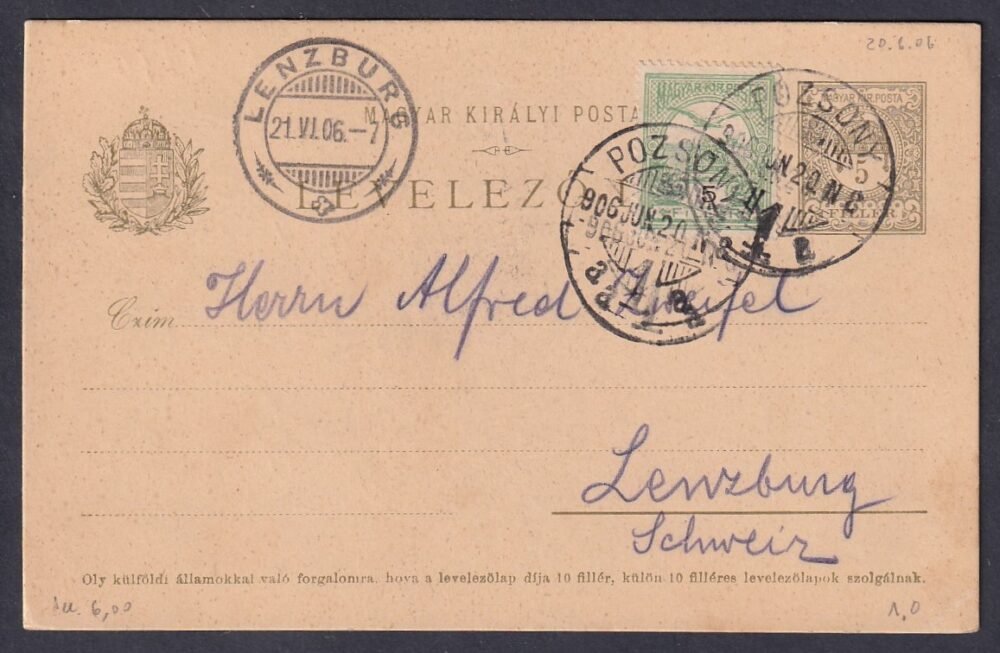 20.6.06
LENZBURG
21.VI.06.–7
MAGYAR KIRÁLYI POSTA
MAGYAR KIR. POSTA
MAGYAR KIR. POSTA
5
FILLÉR
5
POZSONY
906 JUN 20 N 8
1 a
POZSONY
906 JUN 20 N 8
1 a
LEVELEZŐ
Czím
Herrn Alfred
Lenzburg
Schweiz
Oly külföldi államokkal való forgalomra, hova a levelezőlap díja 10 fillér, külön 10 filléres levelezőlapok szolgálnak.
6,00
1,0